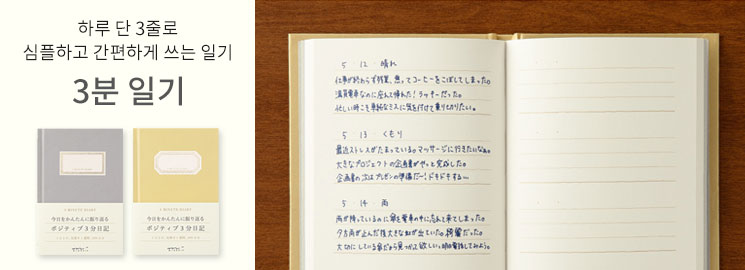 하루 단 3줄로
심플하고 간편하게 쓰는 일기
3분 일기
3 MINUTE DIARY
今日をかんたんに振り返る
ポジティブ3分日記
MIDORI
3 MINUTE DIARY
今日をかんたんに振り返る
ポジティブ3分日記
MIDORI
5 12 晴れ
仕事が終わらず残業、焦ってコーヒーをこぼしてしまった。
満員電車なのに座れて帰れた!ラッキーだった。
忙しい時こそ単純なミスに気を付けて乗り切りたい。
5 13 くもり
最近ストレスがたまっている。マッサージに行きたいなぁ。
大きなプロジェクトの企画書がやっと完成した。
企画書の次はプレゼンの準備だー!ドキドキする〜
5 14 雨
雨が降っているのに傘を電車の中に忘れて来てしまった。
夕方雨が止んだ後大きな虹が出ていた。綺麗だった。
大切にしている傘だから見つかって欲しい。明日電話してみよう。